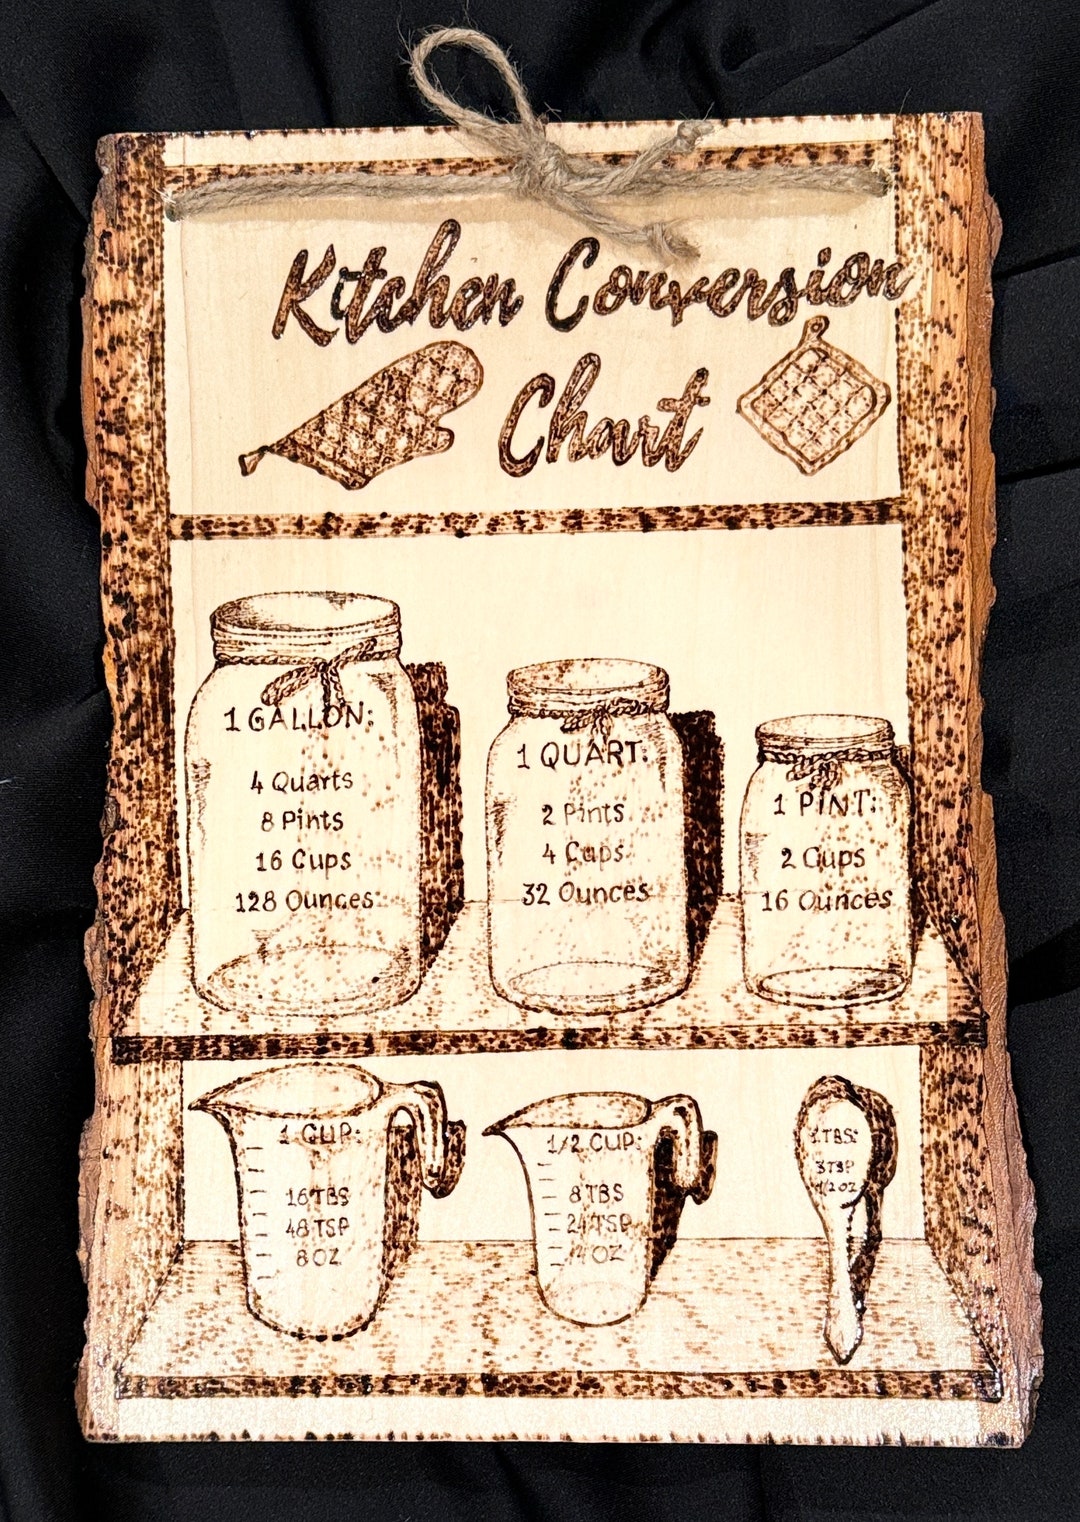 Kitchen Conversion
Chart
1 GALLON:
4 Quarts
8 Pints
16 Cups
128 Ounces
1 QUART:
2 Pints
4 Cups
32 Ounces
1 PINT:
2 Cups
16 Ounces
1 CUP:
16 TBS
48 TSP
8 OZ
1/2 CUP:
8 TBS
24 TSP
4 OZ
1 TBS:
3 TSP
1/2 OZ